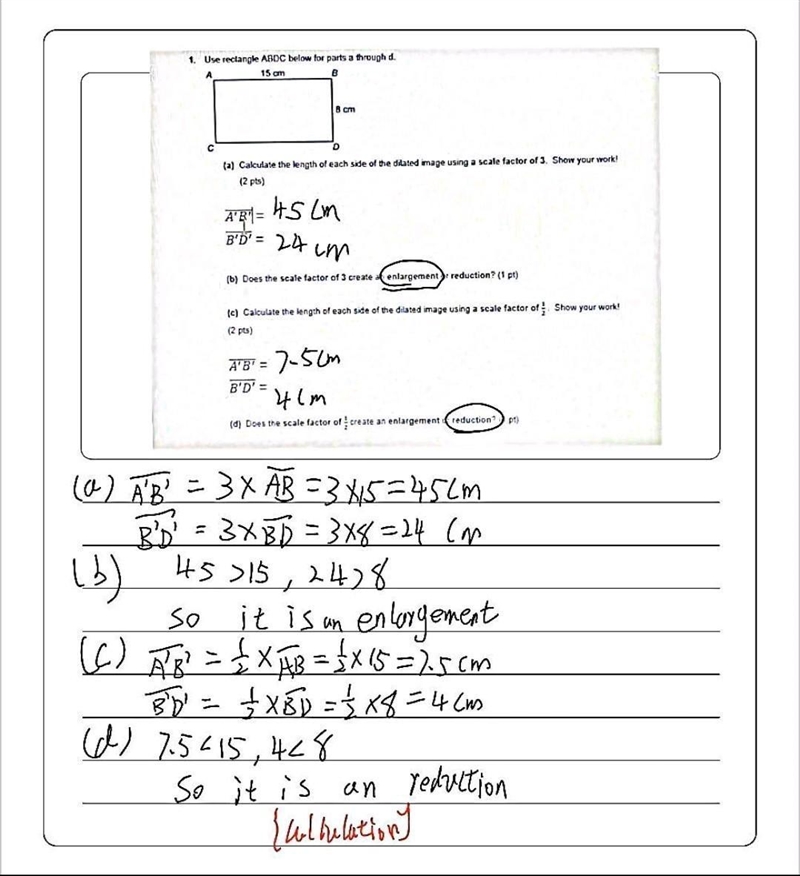 1. Use rectangle ABDC below for parts a through d.
A 15 cm B
8 cm
C D
(a) Calculate the length of each side of the dilated image using a scale factor of 3. Show your work!
(2 pts)
A'B' = 45 cm
B'D' = 24 cm
(b) Does the scale factor of 3 create an enlargement or reduction? (1 pt)
(c) Calculate the length of each side of the dilated image using a scale factor of 1/2. Show your work!
(2 pts)
A'B' = 7.5 cm
B'D' = 4 cm
(d) Does the scale factor of 1/2 create an enlargement reduction? pt)
(a) A'B' = 3 × AB = 3 × 15 = 45 cm
B'D' = 3 × BD = 3 × 8 = 24 cm
(b) 45 > 15, 24 > 8
So it is an enlargement
(c) A'B' = 1/2 × AB = 1/2 × 15 = 7.5 cm
B'D' = 1/2 × BD = 1/2 × 8 = 4 cm
(d) 7.5 < 15, 4 < 8
So it is an reduction